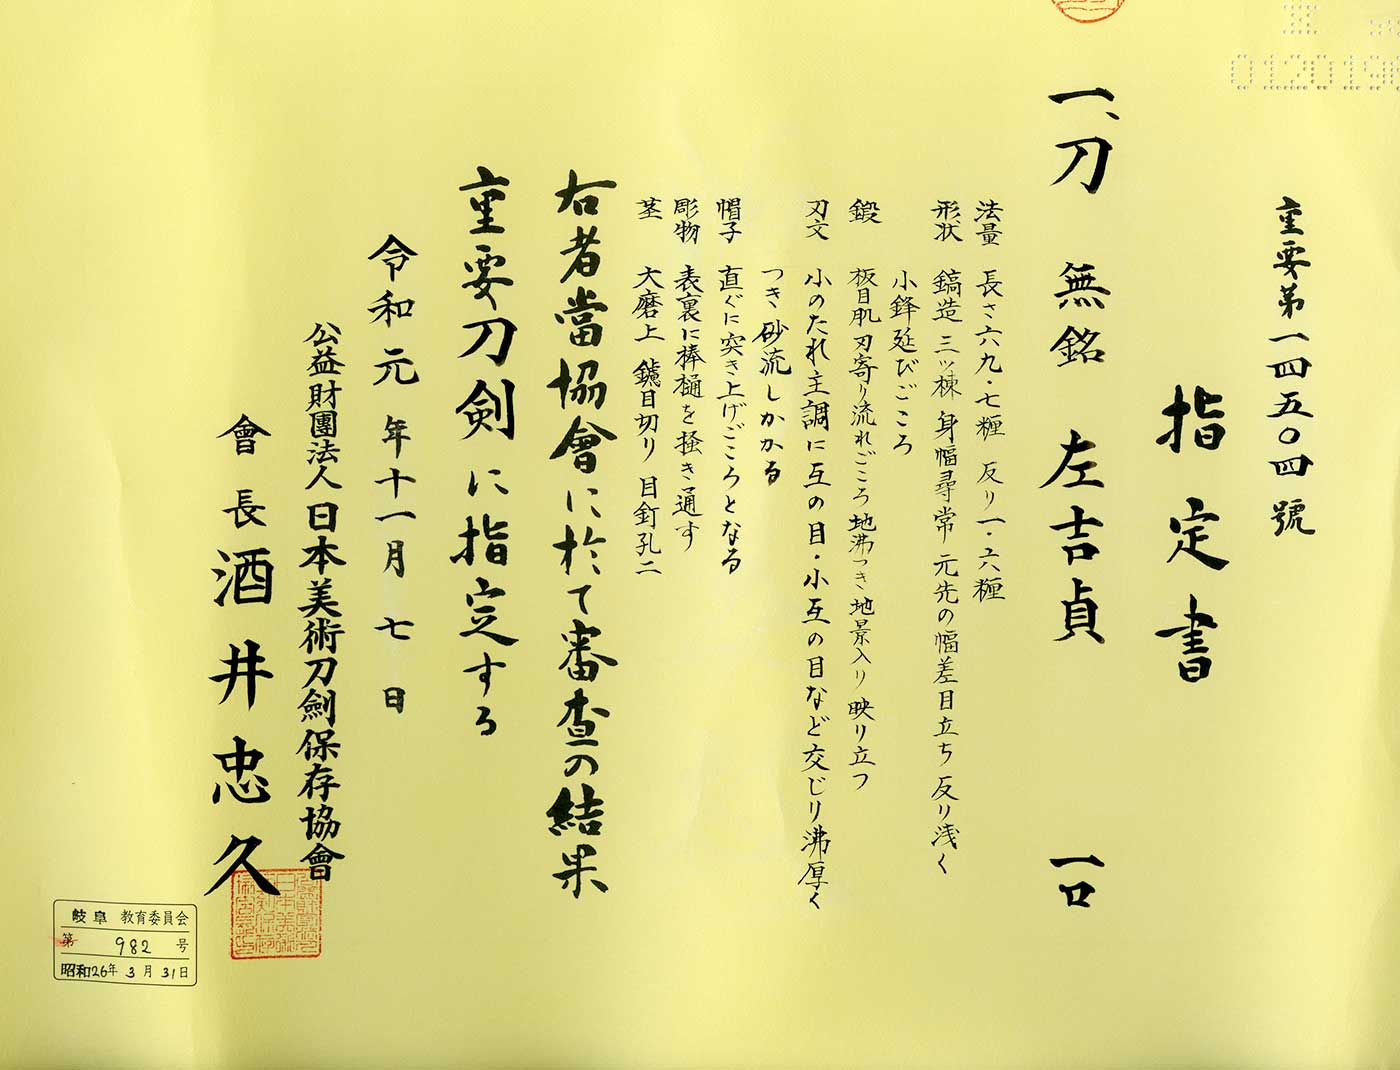 重要第一四五〇四號
指定書
一、刀 無銘 左吉貞 一口
法量 長さ六九・七糎 反り一・六糎
形状 鎬造 三ッ棟 身幅尋常 元先の幅差目立ち 反り浅く
小鋒延びごころ
鍛 板目肌 刃寄り流れごころ 地沸つき 地景入り 映り立つ
刃文 小のたれ主調に互の目・小互の目など交じり 沸厚く
つき 砂流しかかる
帽子 直ぐに突き上げごころとなる
彫物 表裏に棒樋を掻き通す
茎 大磨上 鑢目切り 目釘孔二
右者當協會に於て審査の結果
重要刀剣に指定する
令和元年十一月七日
公益財團法人日本美術刀劍保存協會
會長 酒井忠久
岐阜 教育委員会
第 982 号
昭和26年3月31日